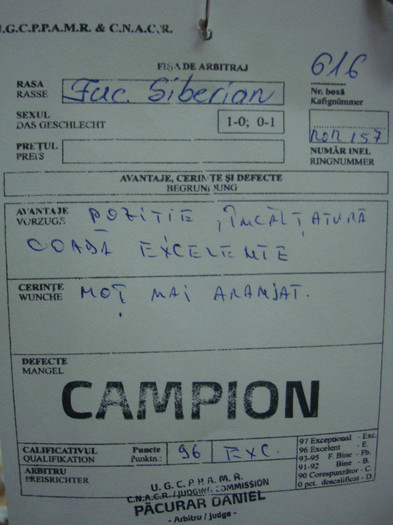 U.G.C.P.P.A.M.R. & C.N.A.C.R.
FIȘA DE ARBITRAJ
616
RASA
RASSE
Juc. Siberian
Nr. boxă
Kafignümmer
SEXUL
DAS GESCHLECHT
1-0; 0-1
PREȚUL
PREIS
ROR 157
NUMĂR INEL
RINGNUMMER
AVANTAJE, CERINȚE ȘI DEFECTE
BEGRUNDUNG
AVANTAJE
VORZUGE
POZITIE, ÎNCĂLȚATURĂ
COADĂ EXCELENTE
CERINȚE
WUNCHE
MOȚ MAI ARANJAT.
DEFECTE
MANGEL
CAMPION
CALIFICATIVUL
QUALIFIKATION
Puncte
Punktn.:
96
EXC.
97 Excepțional - Exc.
96 Excelent - E.
93-95 F. Bine - Fb.
91-92 Bine - B.
90 Corespunzător - C.
0 pct. descalificat - D.
ARBITRU
PREISRICHTER
U. G. C. P. P. A. M. R.
C.N.A.C.R. / JUDGING COMMISSION
PĂCURAR DANIEL
- Arbitru / Judge -